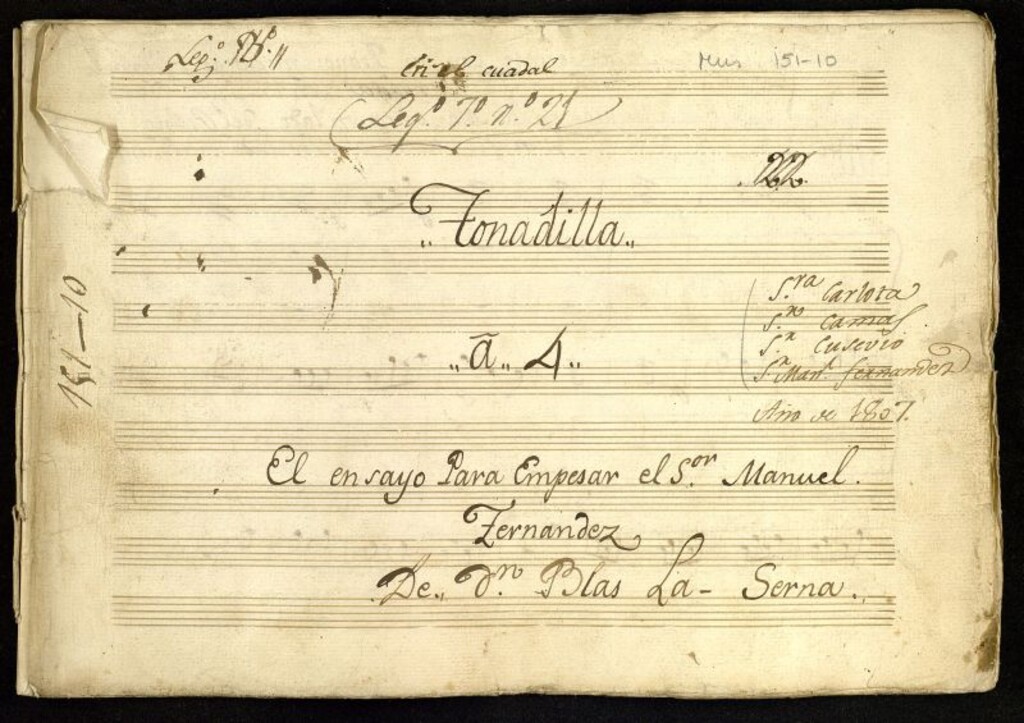 Leg.º
Mus 151-10
Leg.º 7.º n.º 21
22
Tonadilla
151-10
S.ra Carlota
S.r Camas
S.r Eusevio
à 4
S.r Man.l Fernandez
Año de 1807.
El ensayo Para Empesar el S.or Manuel.
Fernandez
De d.n Blas La-Serna.